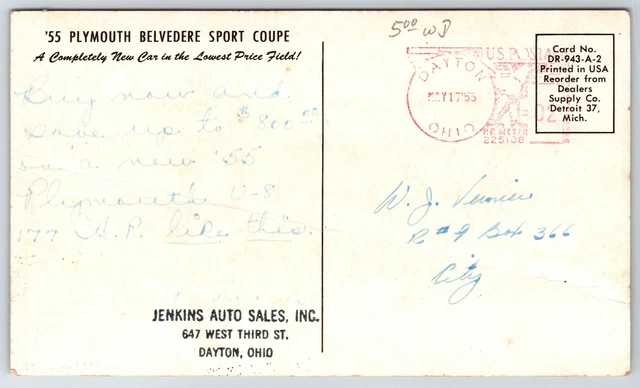 '55 PLYMOUTH BELVEDERE SPORT COUPE
A Completely New Car in the Lowest Price Field!
Buy now and
save up to $800.00
on a new '55
Plymouth V-8
177 H.P. like this.
JENKINS AUTO SALES, INC.
647 WEST THIRD ST.
DAYTON, OHIO
5.00
DAYTON
MAY 17 '55
OHIO
U.S. POSTAGE
02
P.B. METER
225108
Card No.
DR-943-A-2
Printed in USA
Reorder from
Dealers
Supply Co.
Detroit 37,
Mich.
W. J.
R#9 Box 366
City